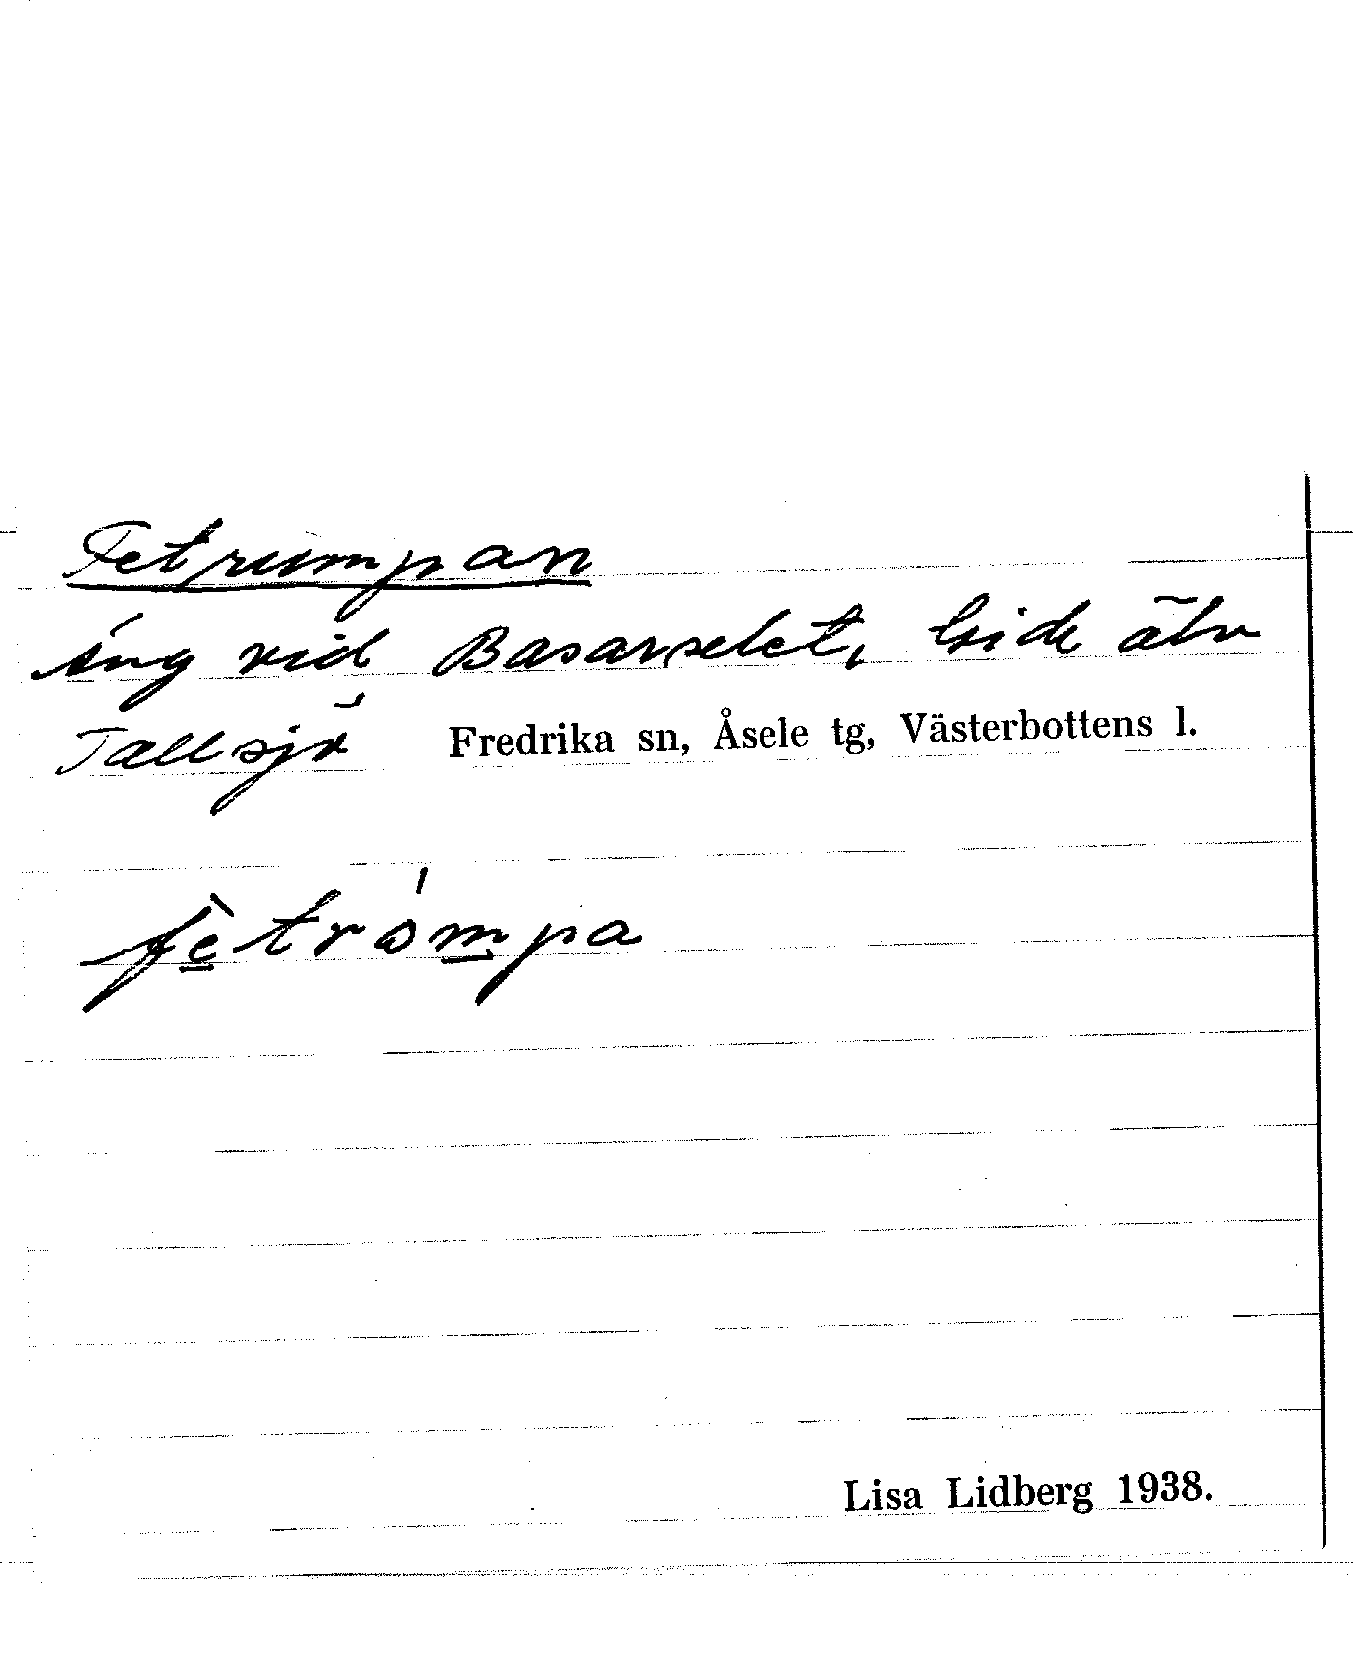 Fetrumpan
äng vid Basarselet, Lide älv
Tallsjö Fredrika sn, Åsele tg, Västerbottens l.
fètròmpa
Lisa Lidberg 1938.